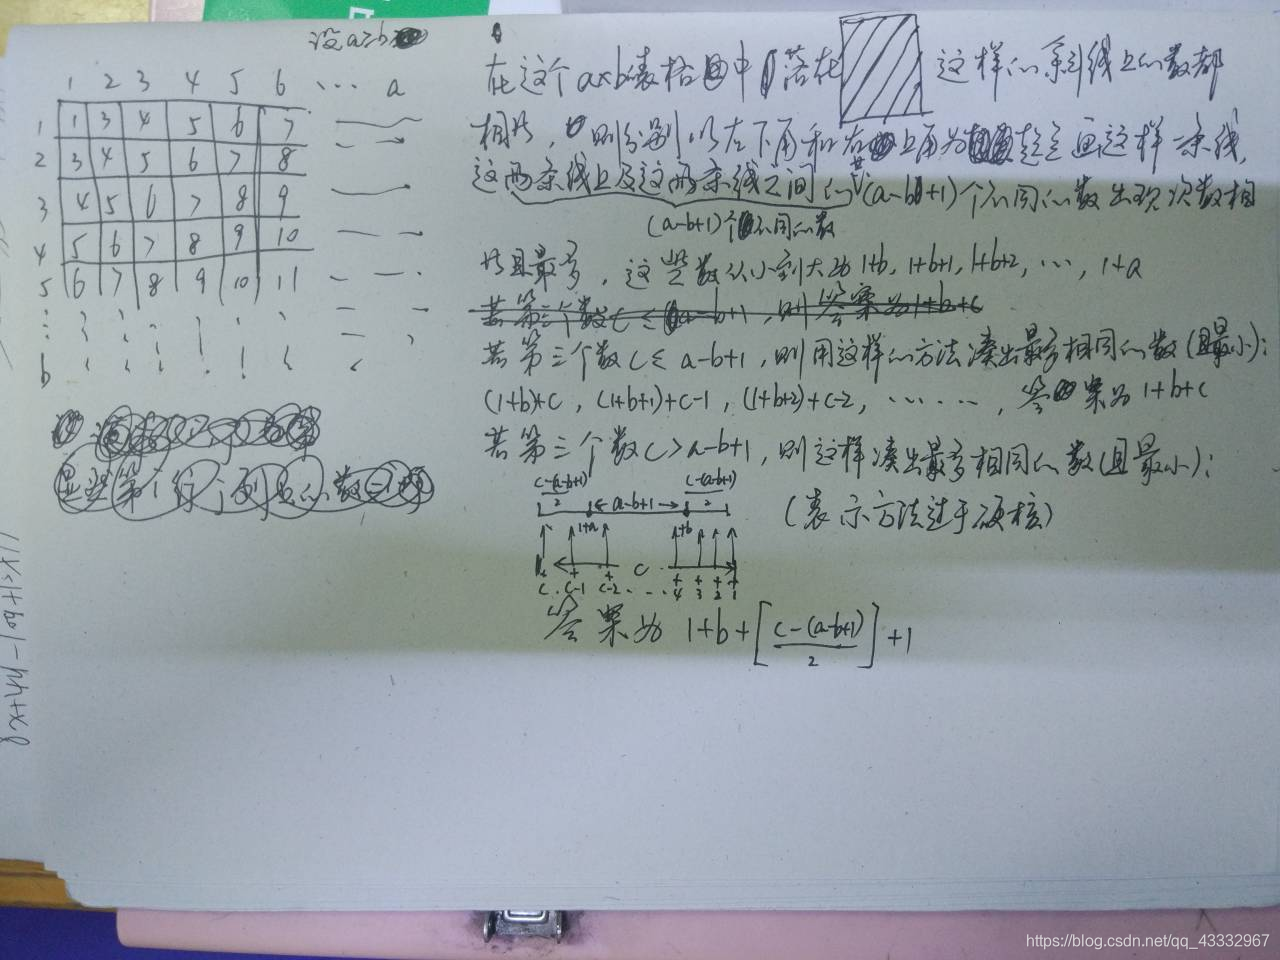 设a≥b
1 2 3 4 5 6 … a
1 1 3 4 5 6 7
2 3 4 5 6 7 8
3 4 5 6 7 8 9
4 5 6 7 8 9 10
5 6 7 8 9 10 11
b
在这个a×b表格中落在 这样的斜线上的数都
相等,则分别以左下角和右上角为起点画这样一条线,
这两条线上及这两条线之间的(a-b+1)个不同的数出现次数相
(a-b+1)个不同的数
等且最多,这些数从小到大为1+b,1+b+1,1+b+2,…,1+a
若第三个数c≤(a-b+1,则答案为1+b+c
若第三个数c≤a-b+1,则用这样的方法凑出最多相同的数(且最小):
(1+b)+c,(1+b+1)+c-1,(1+b+2)+c-2,……,答案为1+b+c
若第三个数c>a-b+1,则这样凑出最多相同的数(且最小):
c-(a-b+1)/2 a-b+1 c-(a-b+1)/2
(表示方法过于硬核)
1+a 1+b
c
c c-1 c-2 … 4 3 2 1
答案为 1+b+[c-(a-b+1)/2]+1
https://blog.csdn.net/qq_43332967